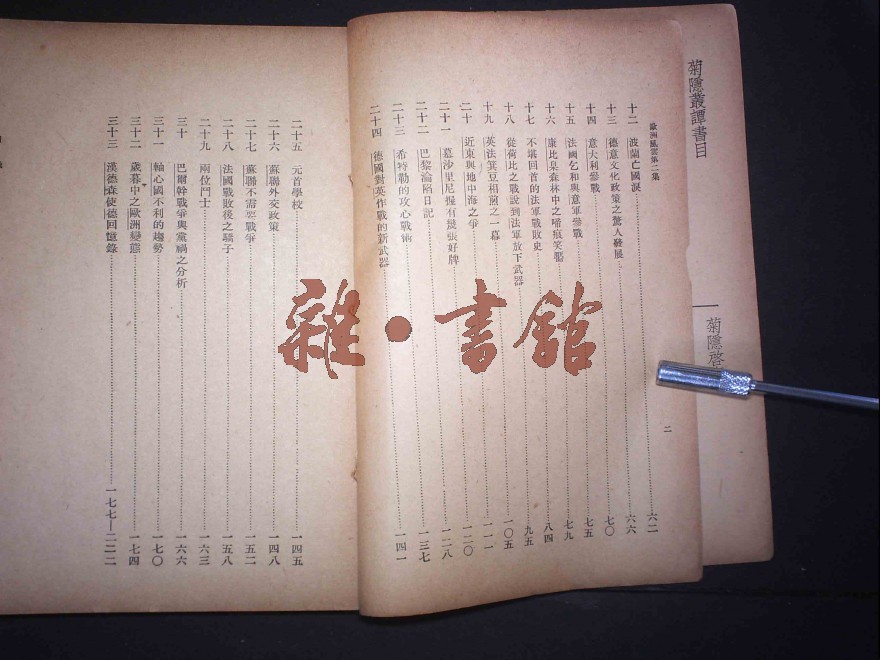 菊隱叢譚書目
菊隱啓
歐洲風雲第二集
二
十二 波蘭亡國淚……六二
十三 德意文化政策之驚人發展……六六
十四 意大利參戰……七〇
十五 法國乞和與意軍參戰……七五
十六 康比臬森林中之啼痕笑靨……七九
十七 不堪回首的法軍戰敗史……八四
十八 從荷比之戰說到法軍放下武器……九五
十九 英法箕豆相煎之一幕……一〇五
二十 近東與地中海之爭……一一一
二十一 墓沙里尼握有幾張好牌……一二〇
二十二 巴黎淪陷日記……一二八
二十三 希特勒的攻心戰術……一三七
二十四 德國對英作戰的新武器……一四一
二十五 元首學校……一四五
二十六 蘇聯外交政策……一四八
二十七 蘇聯不需要戰爭……一五二
二十八 法國戰敗後之驕子……一五八
二十九 兩位鬥士……一六三
三十 巴爾幹戰爭與黨禍之分析……一六六
三十一 軸心國不利的趨勢……一七〇
三十二 歲暮中之歐洲變態……一七四
三十三 漢德森使德回憶錄……一七七—二二二
雜·書館